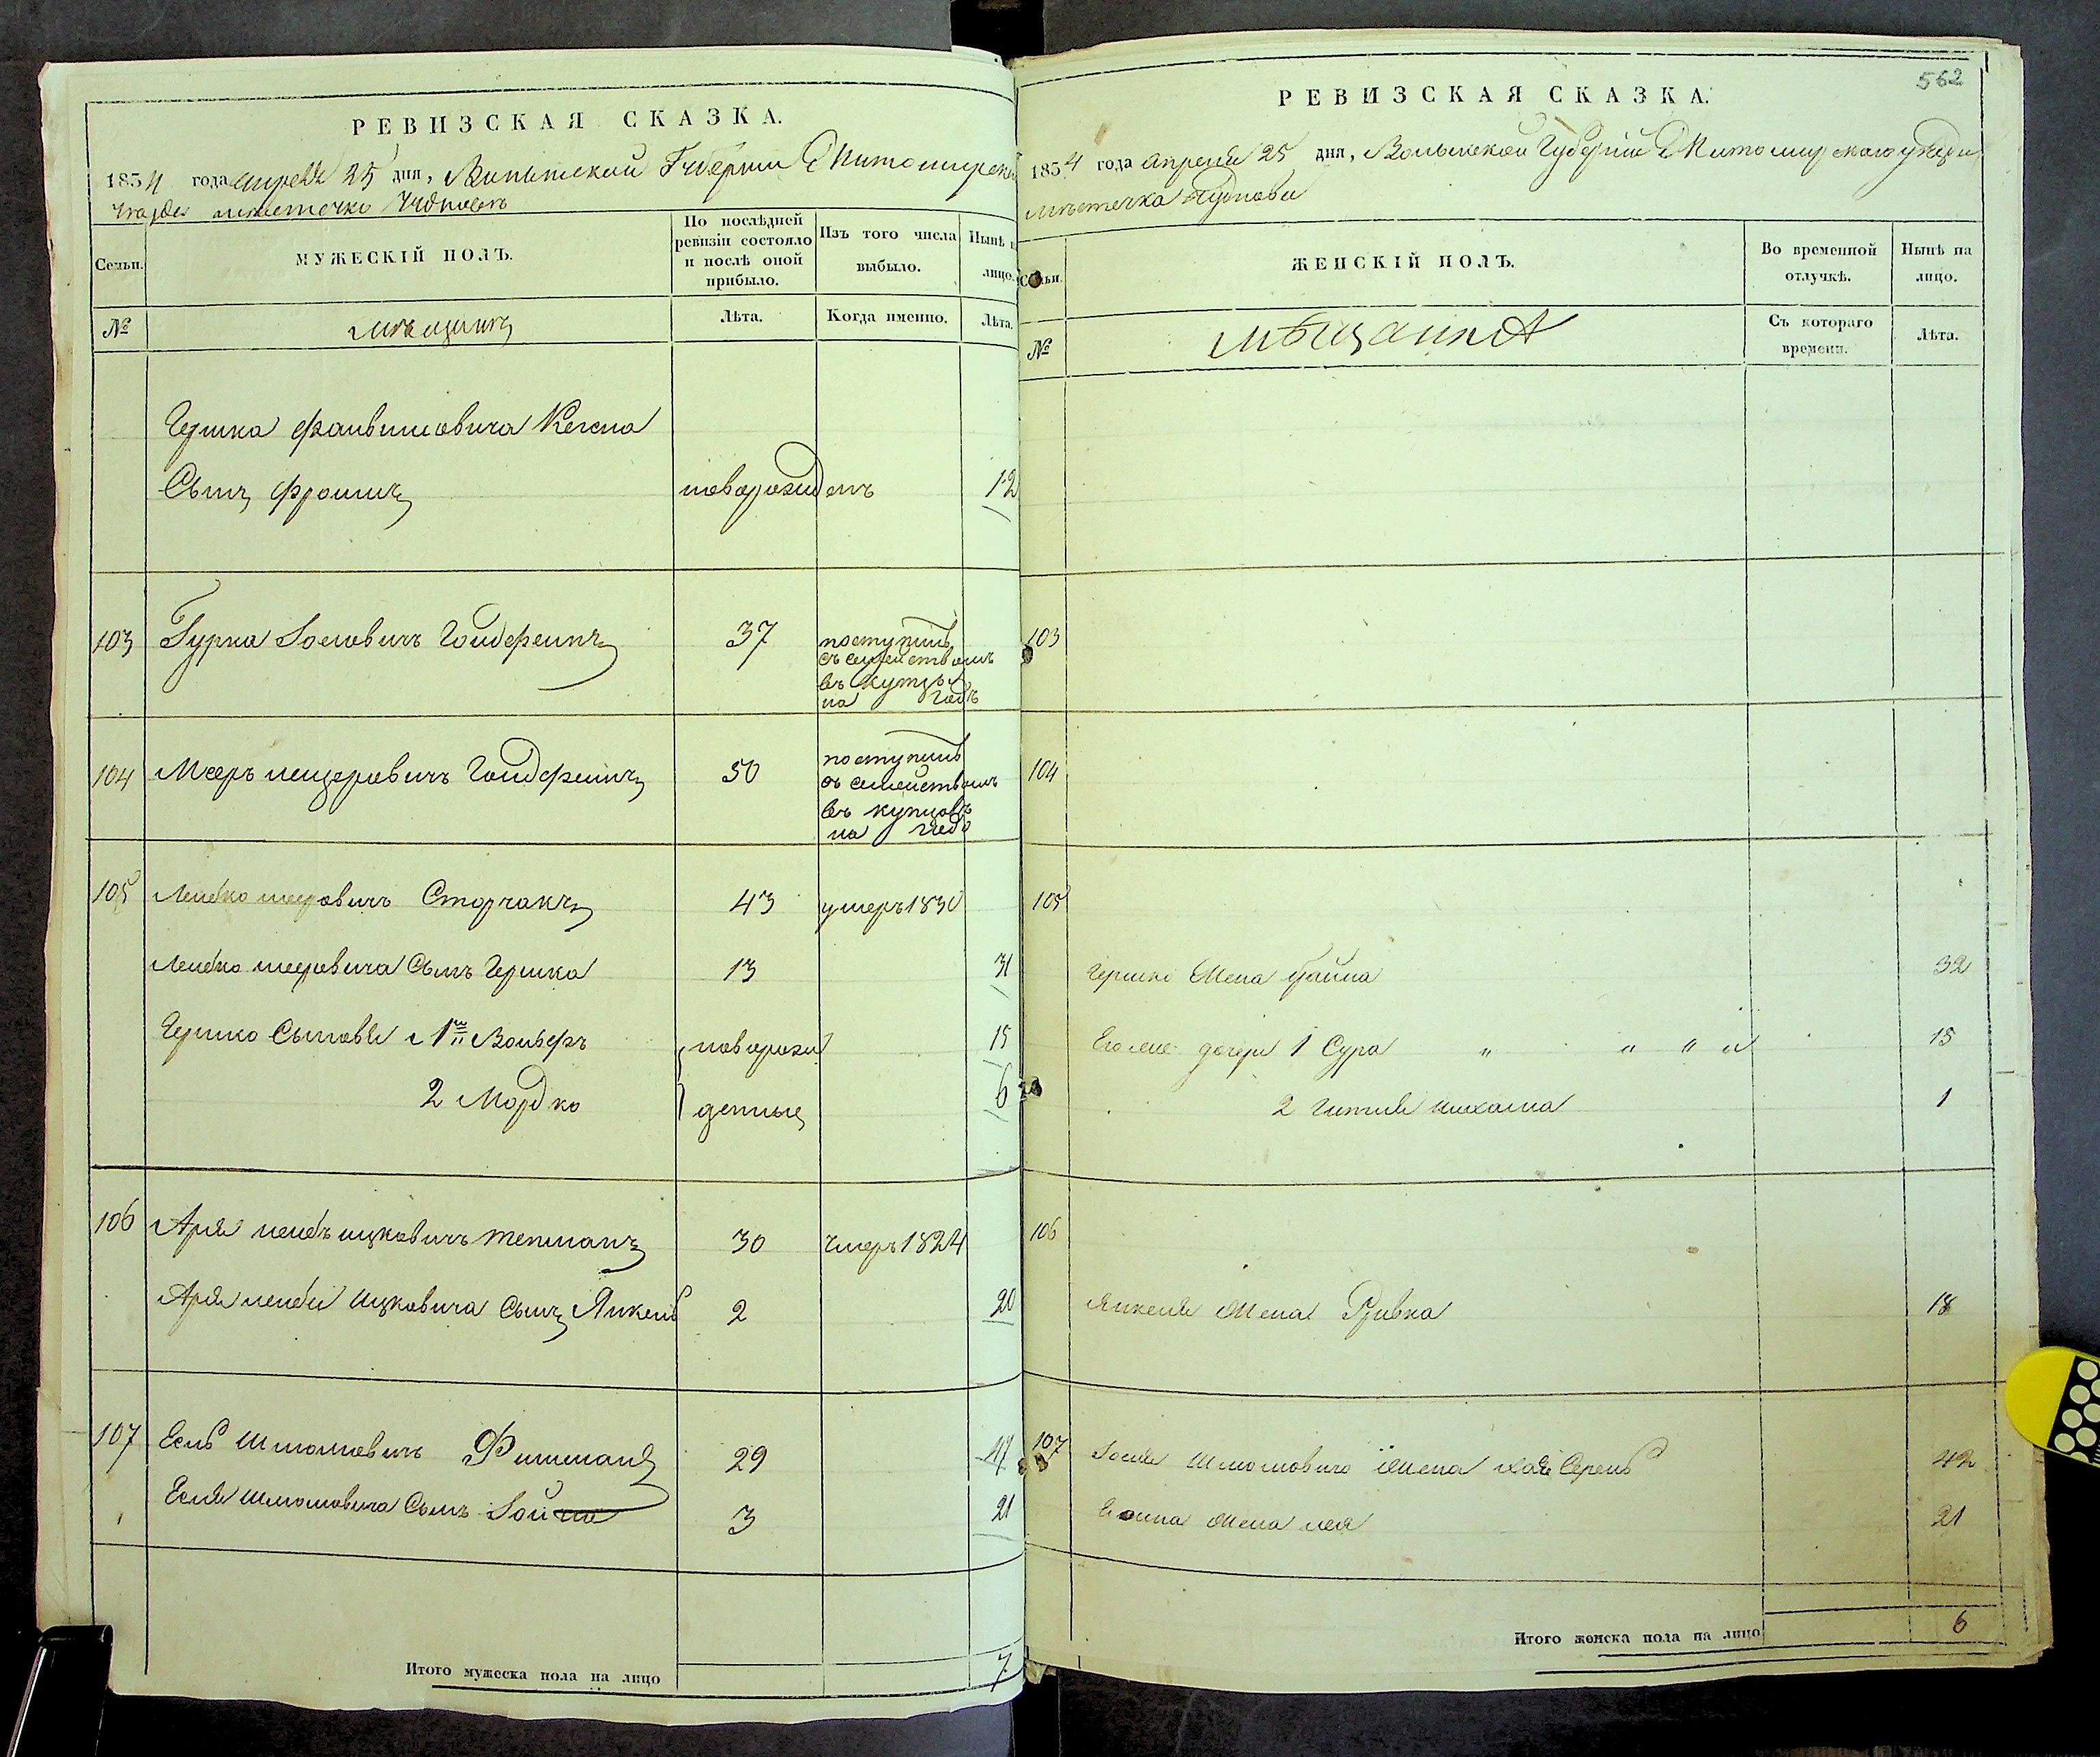 РЕВИЗСКАЯ СКАЗКА.
1854 года апреля 25 дня, Волынской Губернии Житомирского
уезда местечка Чуднова
Семьи.
МУЖЕСКІЙ ПОЛЪ.
По послѣдней ревизіи состояло и послѣ оной прибыло.
Изъ того числа выбыло.
Нынѣ на лицо.
№
мѣщанъ
Лѣта.
Когда именно.
Лѣта.
Гершка Файвишовича
Сынъ Фроимъ новорожденъ 12
103 Гурка Гольдфейнъ 37 поступилъ
съ семействомъ
въ купцы
на
104 Мееръ Гольдфейнъ 50 поступилъ
съ семействомъ
въ купцовъ
на
105 Лейбко мееровичъ Сторчакъ 43 умеръ 1850
Лейбко мееровича Сынъ Гершко 13 31
Гершко Сыновья 1й Вольфъ новорож 15
2 Мордко денные 6
106 Арія лейбъ ицковичъ 30 умеръ 1824
Арія лейби Ицковича Сынъ Янкель 2 20
107 Есель Шмоиловичъ Фишманъ 29 47
Еселя Шмоиловича Сынъ 3 21
Итого мужеска пола на лицо 7
562
РЕВИЗСКАЯ СКАЗКА.
1854 года апреля 25 дня, Волынской Губерніи Житомирского уезда
мѣстечка Чуднова
Семьи.
ЖЕНСКІЙ ПОЛЪ.
Во временной отлучкѣ.
Нынѣ на лицо.
№
мѣщанка
Съ котораго времени.
Лѣта.
103
104
105
Гершки Жена 32
Его же дочери 1 Сура " " " " 15
2 Гитля 1
106
Янкеля Жена Ривка 18
107 Еселя Шмоиловича Жена Хая 42
Жена лея 21
Итого женска пола на лицо 6